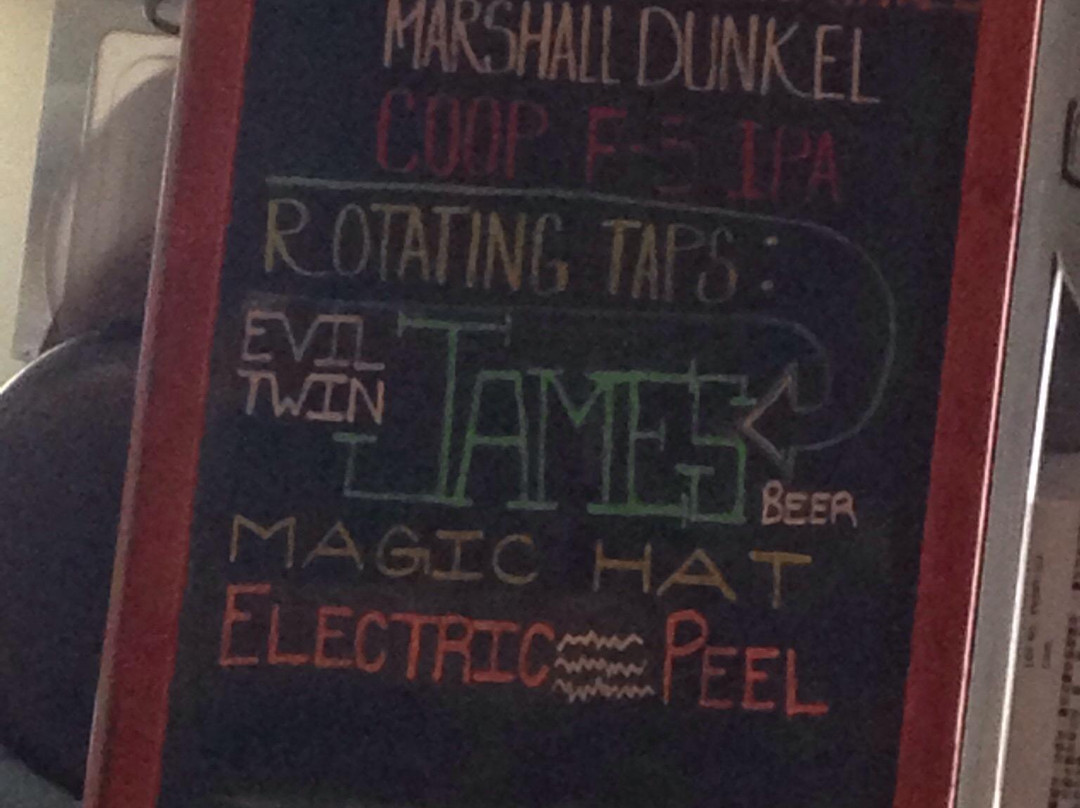 MARSHALL DUNKEL
COOP F-5 IPA
ROTATING TAPS:
EVIL
TWIN
JAMES
BEER
MAGIC HAT
ELECTRIC PEEL